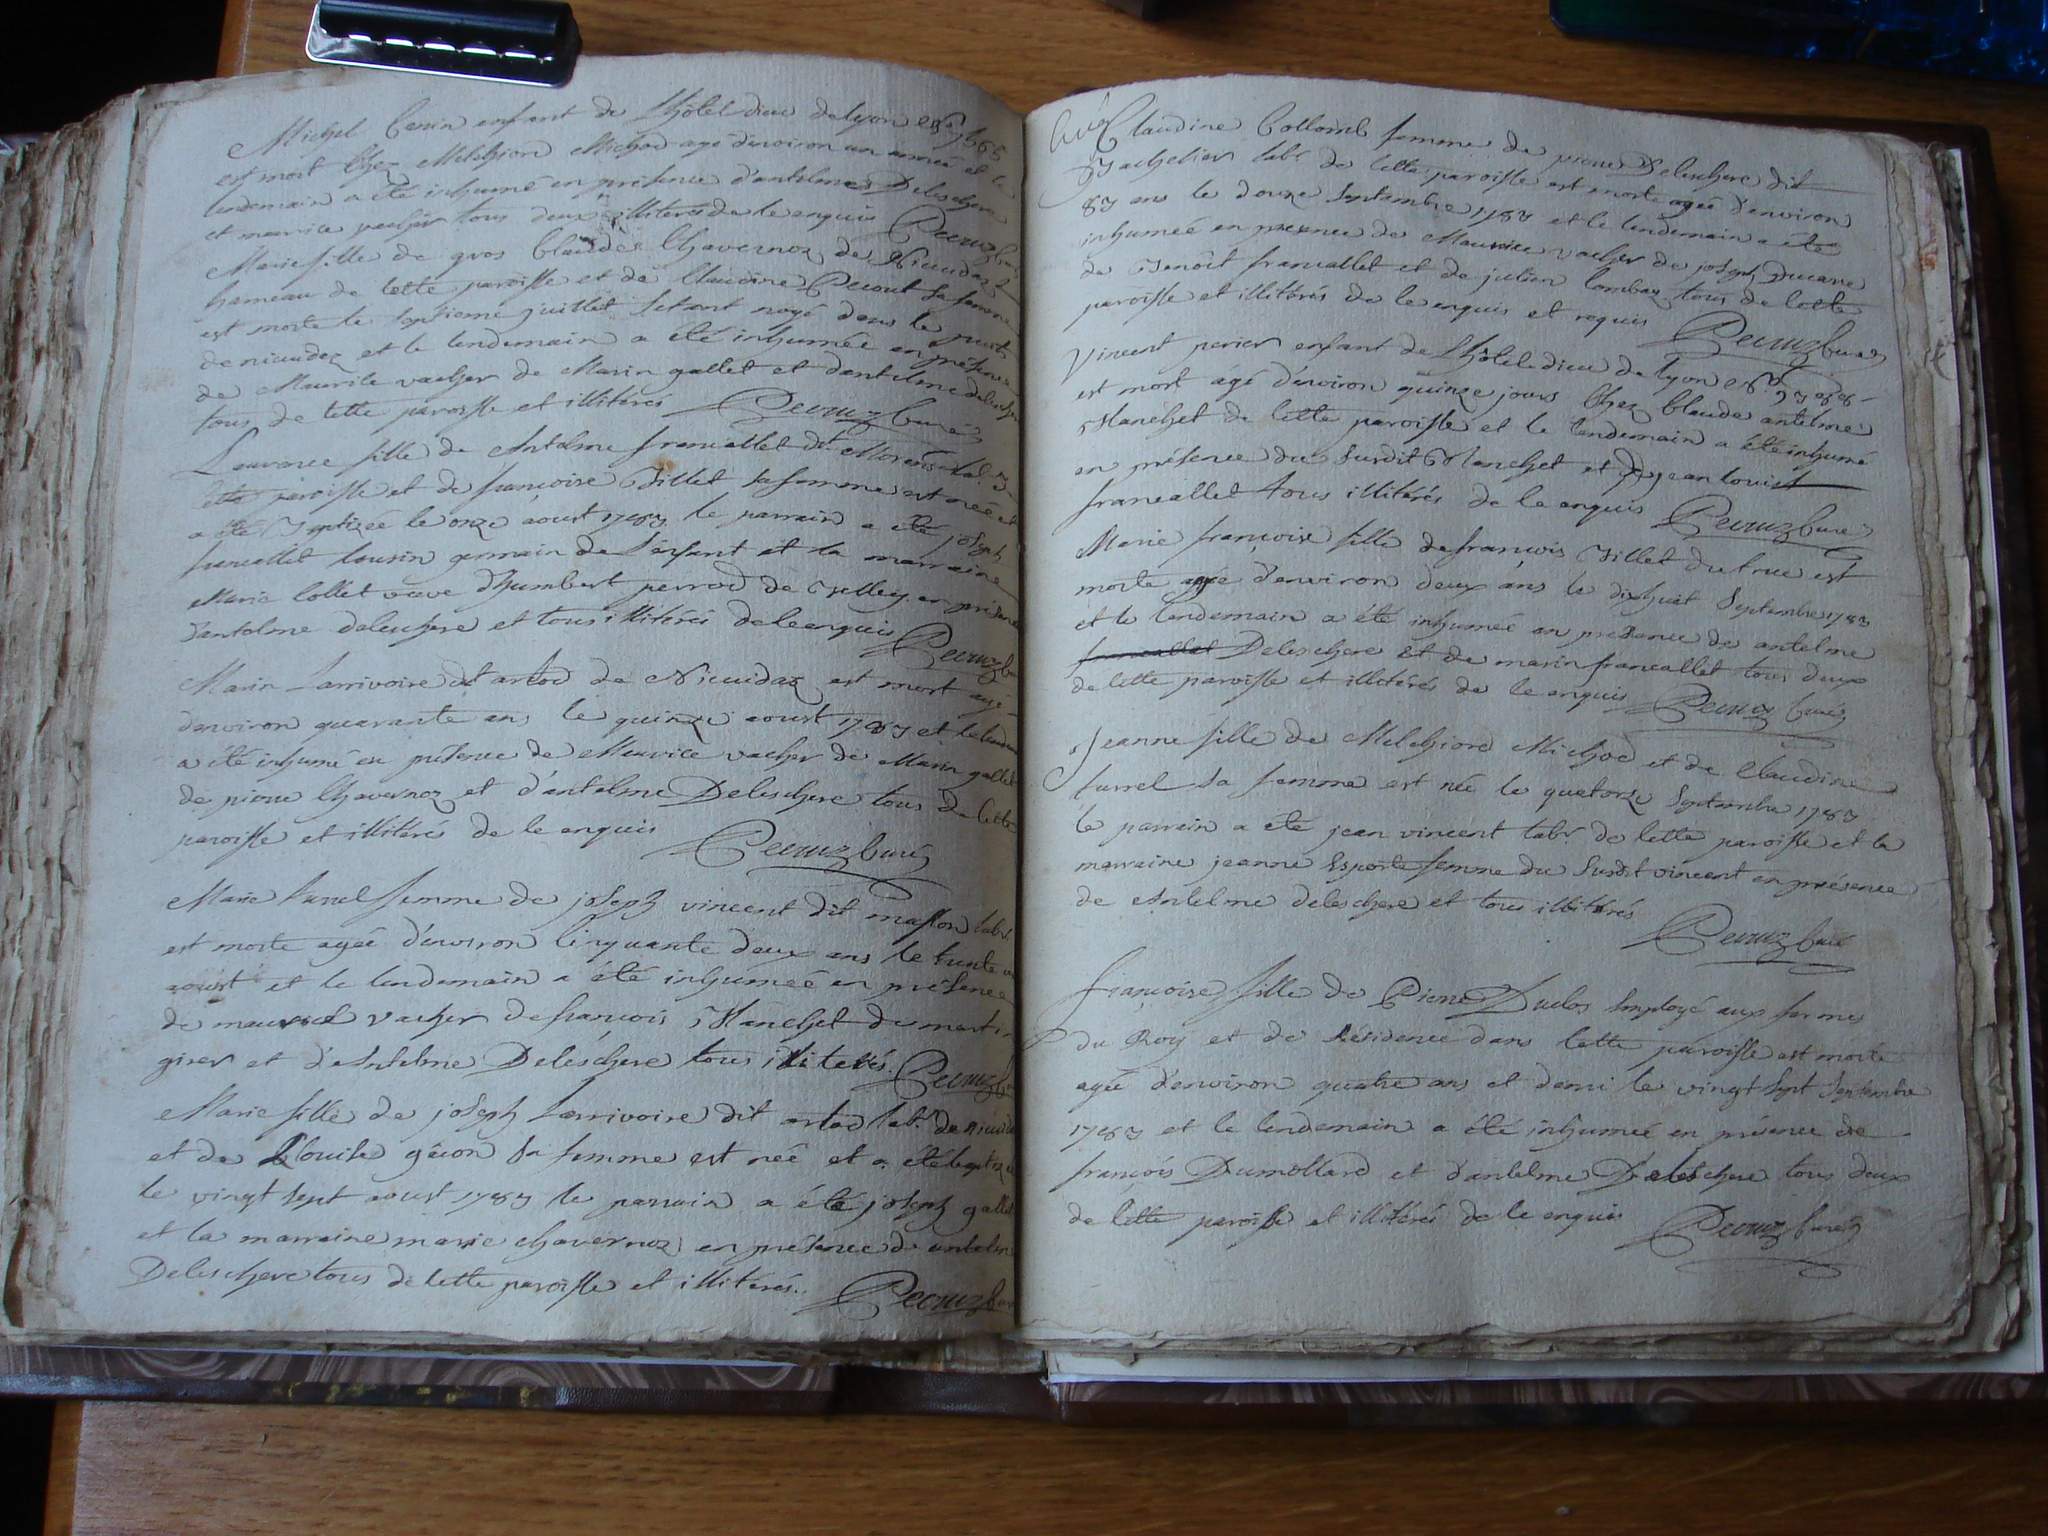 Michel enfant de Lhôtel dieu de lyon
est mort Chez Melchiord Michod agé denviron un année et le
lendemain a été inhumé en présence d'antelme Deleschere
et maurice vacher tous deux illiterés de le enquis Pecruz Curé
Marie fille de gros Claude Chavernoz de Nieudaz
hameau de Cette paroisse et de Claudine sa femme
est morte le septieme juillet setant noyé dans le puits
de nieudaz et le lendemain a été inhumée en présence
de Maurice vacher de Marin gallet et dantelme deleschere
tous de Cette paroisse et illitérés Pecruz Curé
Laurence fille de Antelme francallet dt
Cette paroisse et de françoise Billet sa femme est née et
a été Baptizeé le onze aoust 1783 le parrain a été joseph
francallet Cousin germain de L'enfant et la marraine
Marie Collet veuve d'humbert perrod de en présence
d'antelme deleschere et tous illitérés de le enquis Pecruz
Marin Larrivoire dt artod de Nieuidaz est mort agé
denviron quarante ans le quinze aoust 1783 et le lendem
a été inhumé en présence de Maurice vacher de Marin gallet
de pierre Chavernoz et d'antelme Deleschere tous de Cette
paroisse et illitérés de le enquis Pecruz Curé
Marie femme de joseph vincent dit masson labr.
est morte ageé d'environ Cinquante deux ans le trente
aoust et le lendemain a été inhumeé en présence
de maurice vacher de francois Blanchet de
et d'Antelme Deleschere tous illiterés. Pecruz
Marie fille de joseph Larrivoire dit artod labr. de nieuid
et de Louise sa femme est née et a été baptizé
le vingt sept aoust 1783 le parrain a été joseph gallet
et la marraine marie chavernoz en présence de antelm
Deleschere tous de Cette paroisse et illitérés. Pecruz Cur
Claudine Collomb femme de pierre Deleschere dit
Bachelier labr. de Cette paroisse est morte ageé d'environ
83 ans le douze Septembre 1783 et le lendemain a été
inhumeé en présence de Maurice vacher de joseph
de Benoit francallet et de julien tous de Cette
paroisse et illitérés de le enquis et requis Pecruz Curé
Vincent perier enfant de Lhôtel dieu de lyon
est mort agé d'environ quinze jours Chez Claude antelme
Blanchet de Cette paroisse et le lendemain a été inhumé
en présence du Susdit Blanchet et de jean louis
francallet tous illitérés de le enquis Pecruz Curé
Marie françoise fille de francois Billet est
morte ageé d'environ deux ans le dixhuit Septembre 1783
et le lendemain a été inhumeé en présence de antelme
francallet Deleschere et de marin francallet tous deux
de Cette paroisse et illitérés de le enquis Pecruz Curé
Jeanne fille de Melchiord Michod et de Claudine
furrel sa femme est née le quatorze Septembre 1783
le parrain a été jean vincent labr. de Cette paroisse et la
marraine jeanne femme du Susdit vincent en présence
de Antelme deleschere et tous illitérés
Pecruz Curé
françoise fille de Pierre Duclos Employé aux fermes
du Roy et de Résidence dans Cette paroisse est morte
ageé d'environ quatre ans et demi le vingt sept Septembre
1783 et le lendemain a été inhumeé en présence de
françois Dumollard et d'antelme Deleschere tous deux
de Cette paroisse et illitérés de le enquis Pecruz Curé